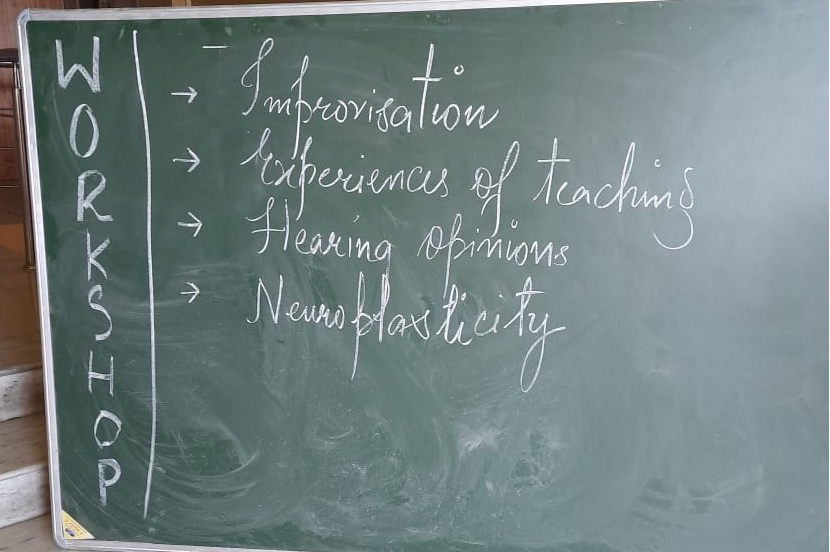 WORKSHOP
→ Improvisation
→ Experiences of teaching
→ Hearing opinions
→ Neuroplasticity